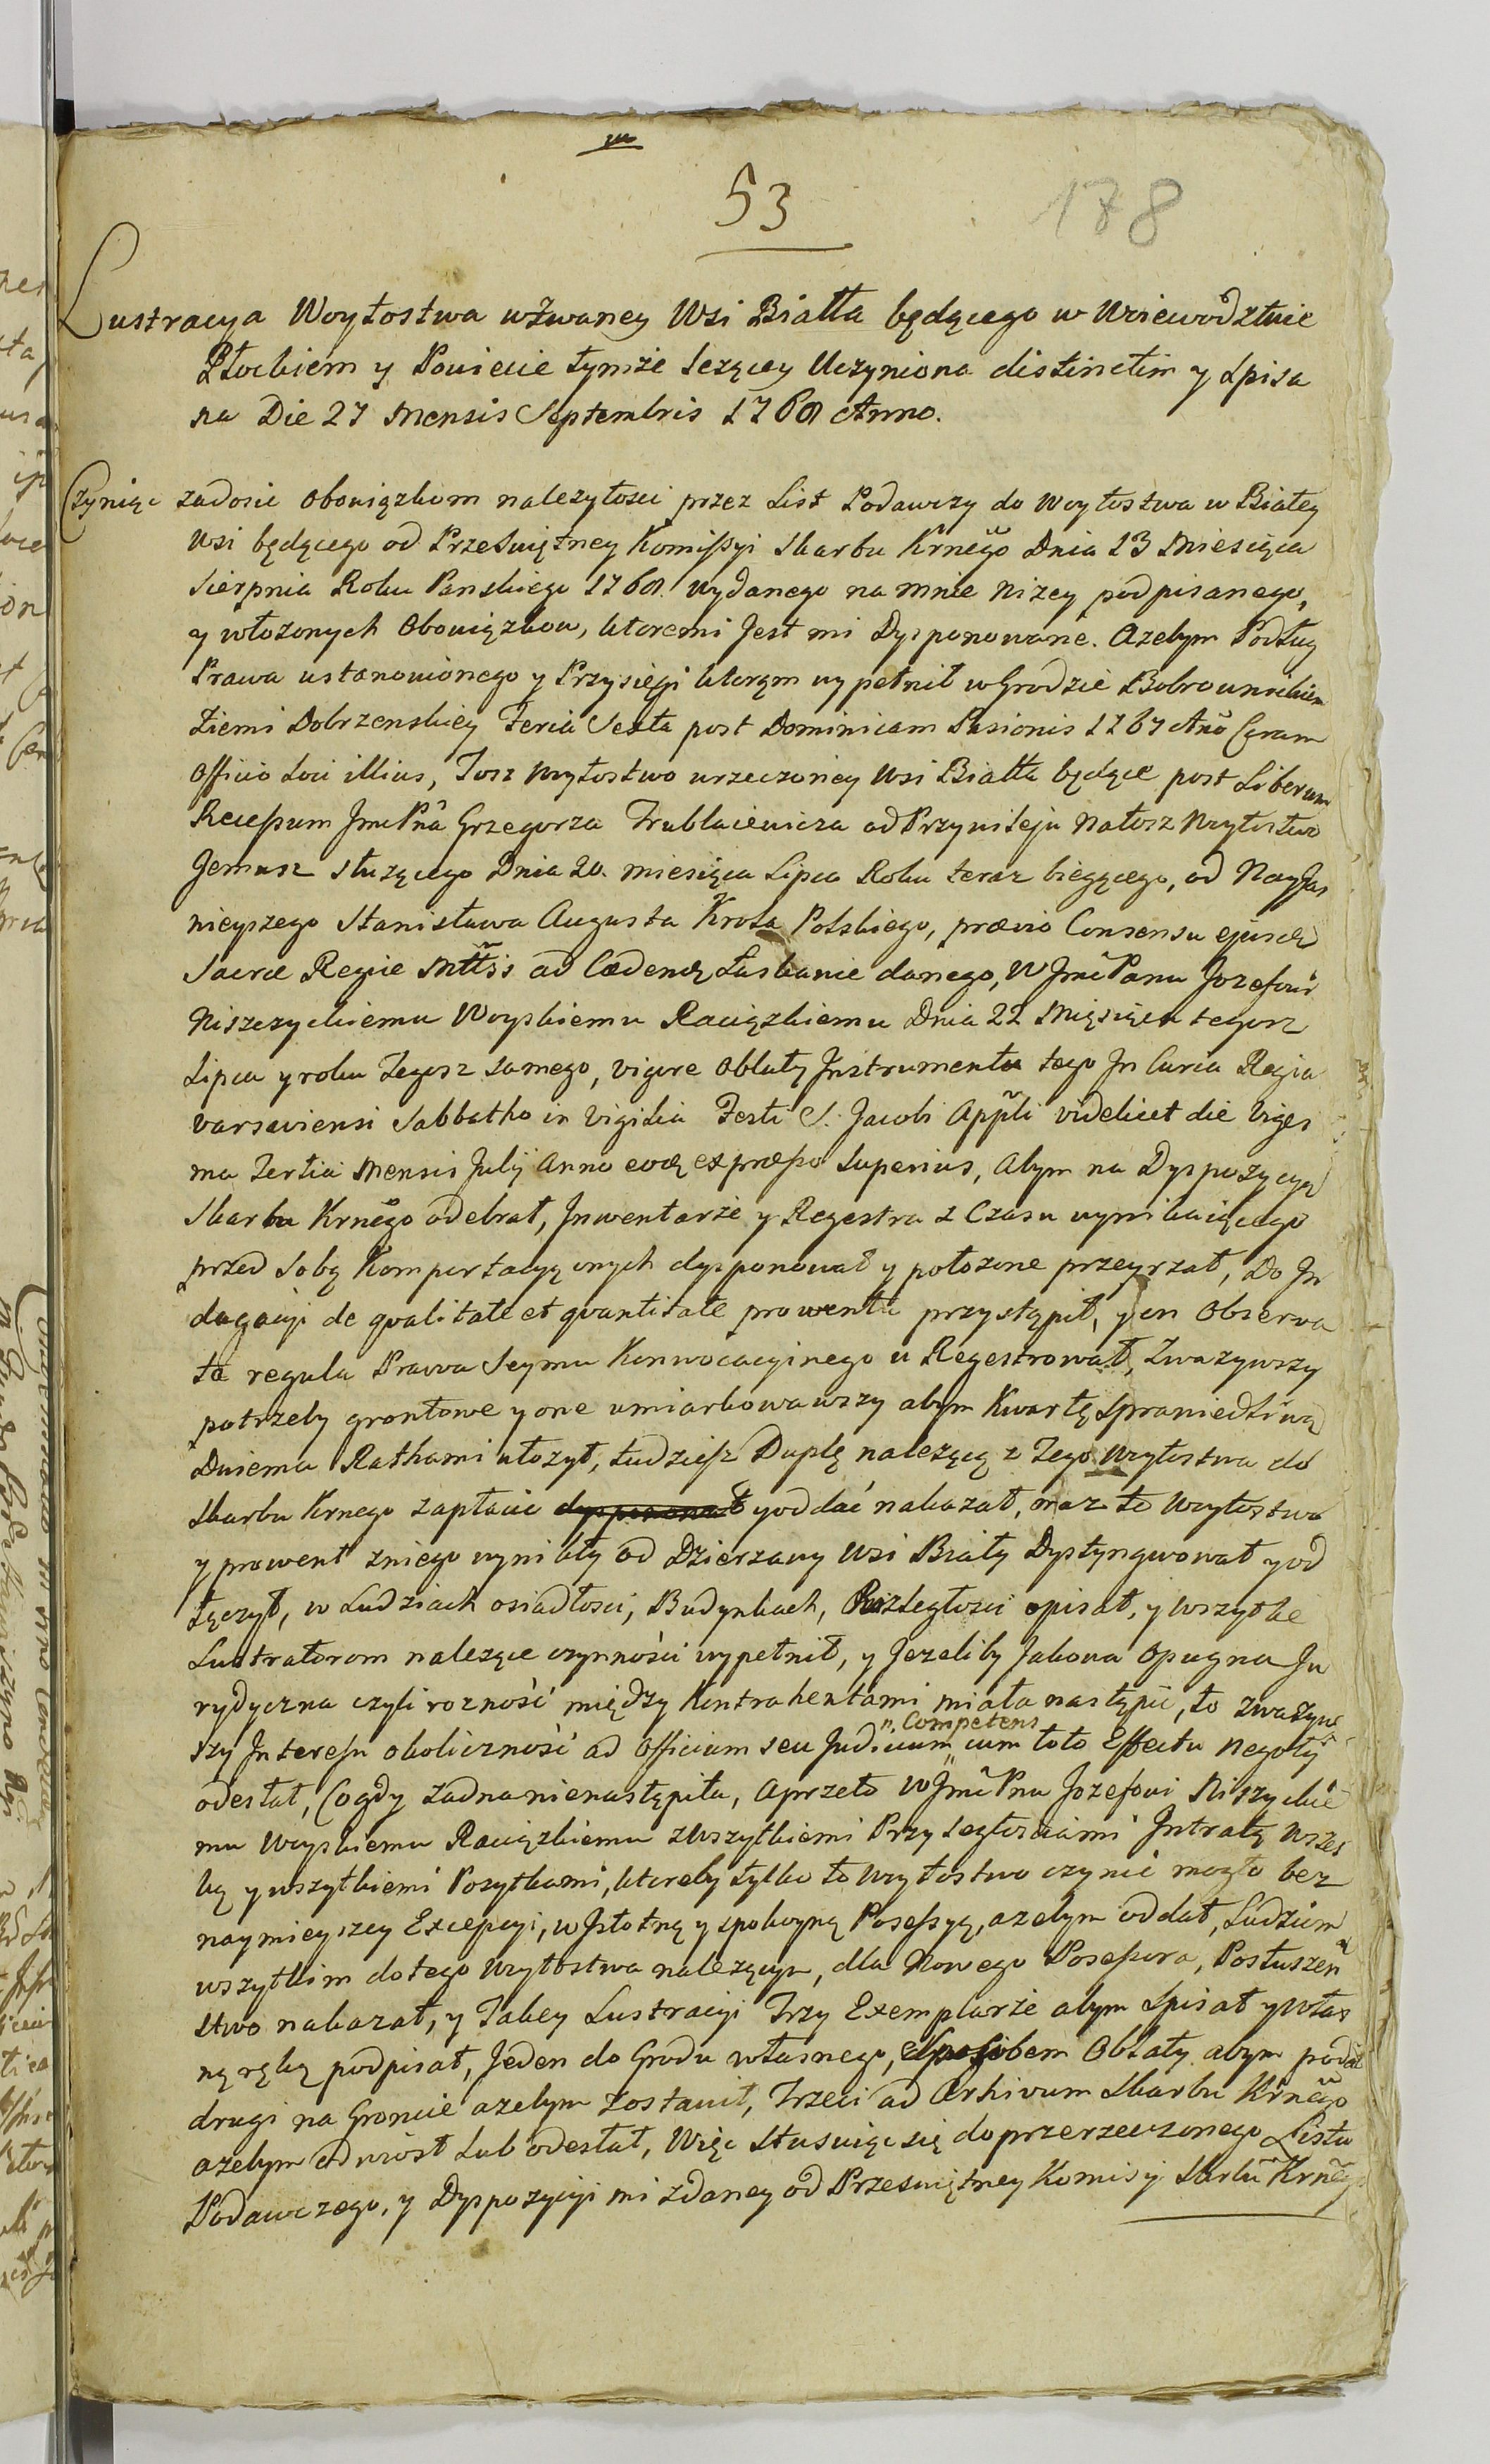 53
178
Lustracya Woytostwa wżwaney Wsi Białła będącego w Woiewodztwie
Płockiem y Powiecie tymże leżącey Uczyniona distinctim y spisa
na Die 27 Mensis Septembris 1769 Anno.
Czyniąc zadosić obowiązkom należytości przez List Podawczy do Woytostwa w Białey
Wsi będącego od Przeświętney Komissyi Skarbu Krnego Dnia 13 Miesiąca
Sierpnia Roku Panskiego 1769. wydanego na mnie niżey podpisanego,
y włożonych obowiązkow, ktoremi Jest mi Dysponowane. Ażebym Podług
Prawa ustanowionego y Przysięgi ktorąm wypełnił w Grodzie Bobrownickim
Ziemi Dobrzenskiey Feria Sexta post Dominicam Pasionis 1767 Ano Coram
Officio Loci illius, Tosz Woytostwo wrzeczoney Wsi Białła będące post Liberum
Recessum Jmci Pna Grzegorza Trublaiewicza od Przywileju na tosz Woytostwo
Jemusz służącego Dnia 20. miesiąca Lipca Roku teraz biegącego, od Nayjas
nieyszego Stanisława Augusta Krola Polskiego, prævio Consensu ejusdę
Sacræ Regiæ Mttis ad Cædendę Łaskawie danego, W Jmci Panu Jozefowi
Niszczyckiemu Woyskiemu Raciązkiemu Dnia 22 Mięsiąca tegosz
Lipca y roku Tegosz samego, vigore Oblaty Instrumentu tego In Curia Regia
Varsaviensi Sabbatho in Vigilia Festi S. Jacobi Appli videlicet die Viges
ma Tertia Mensis Julij Anno eodę expræsso Superius, Abym na Dyspozycyą
Skarbu Krnego odebrał, Inwentarze y Regestra z Czasu wynikaiącego
przed sobą Komportacyą onych dysponował y położone przeyrzał, do In
dagacyi de qvalitate et qvantitate prowentu przystąpił, y on Observa
ta regula Prawa Seymu Konwocacyinego u Regestrował, Zważywszy
potrzeby grontowe y one umiarkowawszy abym Kwartę Sprawiedliwą
Dwiema Rathami ułożył, tudziesz Duplę należącą z Tego Woytostwa do
Skarbu Krnego zapłacić dysponował y oddać nakazał, oraz to Woytostwo
y prowent zniego wynikły od Dzierzawy Wsi Biały Dystyngwował y od
łączył, w Ludziach osiadłości, Budynkach, Rozległości opisał, y wszytkę
Lustratorom należące czynności wypełnił, y Jeżeliby Jakowa Opugna Ju
rydyczna czyli rozność między Kontrahentami miała nastąpić, to zważyw
szy Interessu okoliczność ad Officium seu Judicium " Competens cum toto Effectu Negotij
odesłał, Co gdy żadna nienastąpiła, a przeto W Jmci Pnu Jozefowi Niszyckie
mu Woyskiemu Raciązkiemu zwszytkiemi Przyległosciami Intratą wszel
ką y wszytkiemi Pożytkami, ktoreby tylko to Woytostwo czynić mogło bez
naymieyszey Excepcyi, w Istotną y spokoyną Possessyą, ażebym oddał, Ludziom
wszytkim do tego Woytostwa należącym, dla Nowego Possessora, Posłuszeń
stwo nakazał, y Takey Lustracyi Trzy Exemplarze abym spisał y włas
ną ręką podpisał, Jeden do Grodu własnego, Sposobem Oblaty abym podał
drugi na Groncie ażebym zostawił, Trzeci ad Arhivum Skarbu Krnego
ażebym odwiosł lub odesłał, Więc stusuiąc się do przerzeczonego Listu
Podawczego, y Dyspozycyi mi zdaney od Przeświętney Komisyi Skarbu Krneg